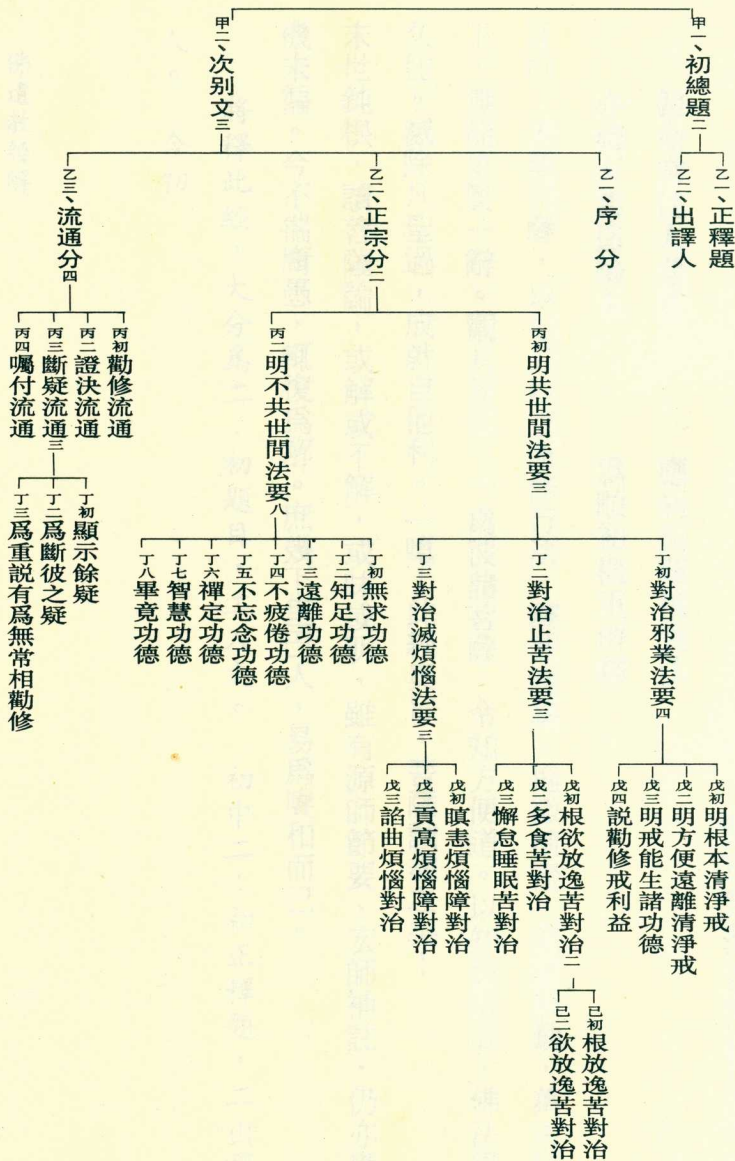 甲一、初總題二
乙一、正釋題
乙二、出譯人
甲二、次別文三
乙一、序 分
乙二、正宗分二
丙初明共世間法要三
丁初對治邪業法要四
戊初明根本清淨戒
戊二明方便遠離清淨戒
戊三明戒能生諸功德
戊四說勸修戒利益
丁二對治止苦法要三
戊初根欲放逸苦對治二
己初根放逸苦對治
己二欲放逸苦對治
戊二多食苦對治
戊三懈怠睡眠苦對治
丁三對治滅煩惱法要三
戊初瞋恚煩惱障對治
戊二貢高煩惱障對治
戊三諂曲煩惱對治
丙二明不共世間法要八
丁初無求功德
丁二知足功德
丁三遠離功德
丁四不疲倦功德
丁五不忘念功德
丁六禪定功德
丁七智慧功德
丁八畢竟功德
乙三、流通分四
丙初勸修流通
丙二證決流通
丙三斷疑流通三
丁初顯示餘疑
丁二爲斷彼之疑
丁三爲重說有爲無常相勸修
丙四囑付流通